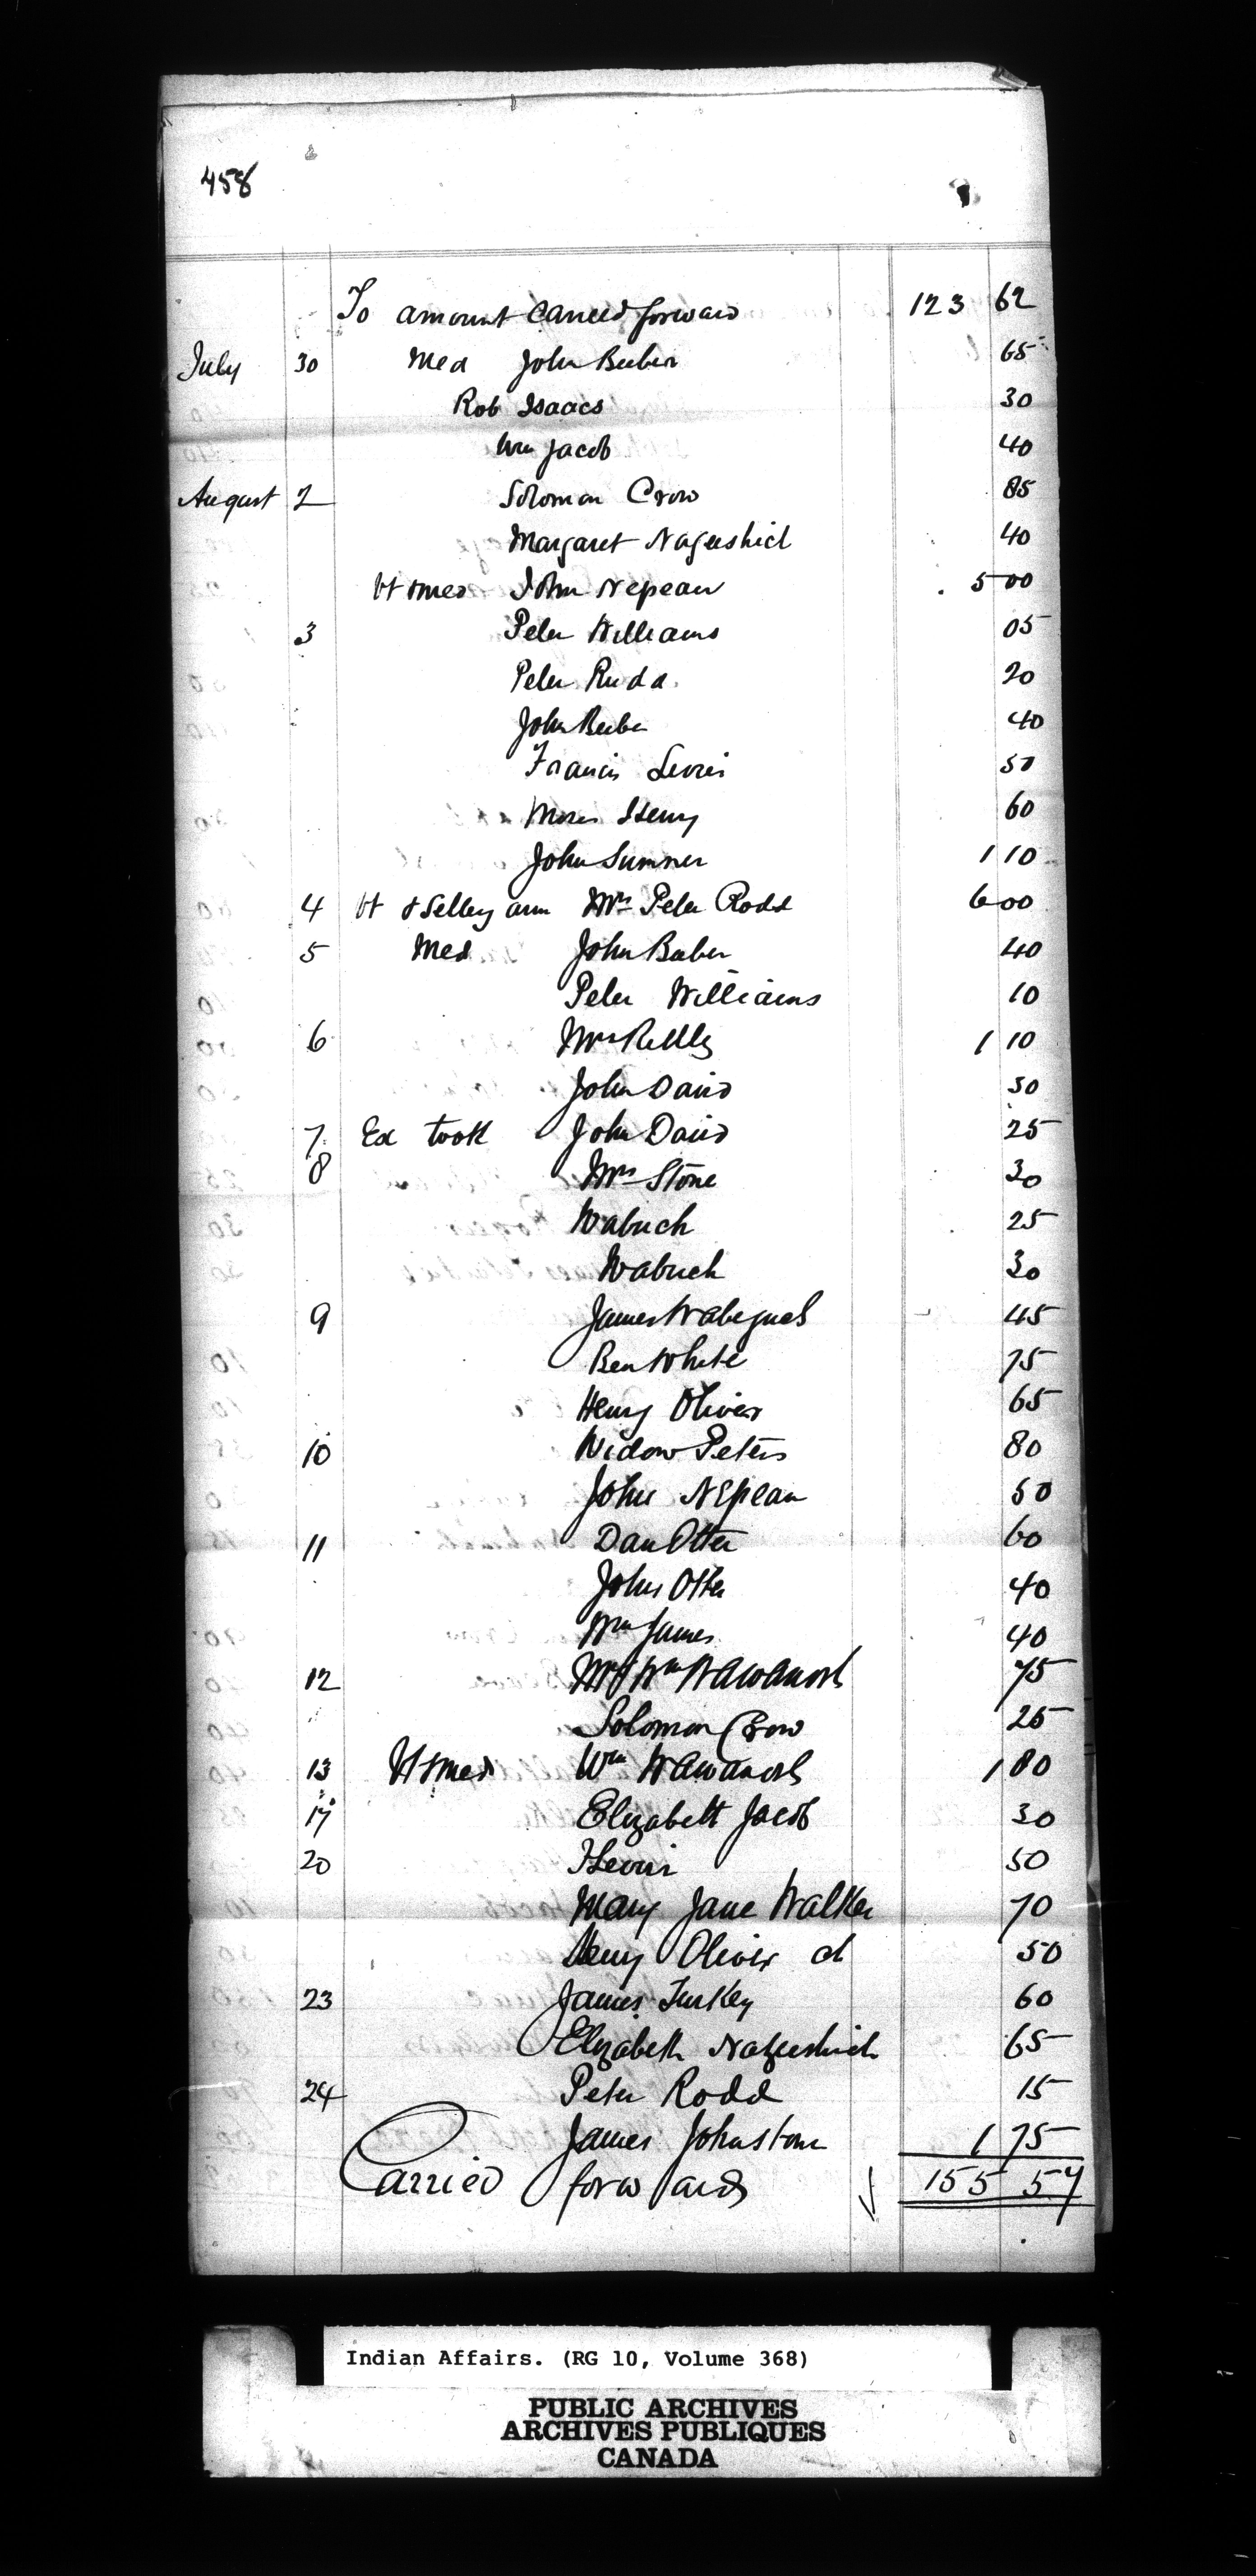 458
To amount carried forward 123 62
July 30 Med John Beeber 65
Rob Isaacs 30
Wm Jacob 40
August 2 Solomon Crow 85
Margaret 40
Vt & med John Nepean 5 00
3 Peter Williams 05
Peter Rudd 20
John Beeber 40
Francis Levier 50
Moses Henry 60
John Sumner 1 10
4 Vt & arm Mrs Peter Rodd 6 00
5 Med John Beeber 40
Peter Williams 10
6 Mrs 1 10
John David 50
7 Ex tooth John David 25
8 Mrs Stone 30
Wabuch 25
Wabuch 30
9 James 45
Ben White 75
Henry Oliver 65
10 Widow Peters 80
John Nepean 50
11 Dan Otter 60
John Otter 40
Wm James 40
12 Mrs Wm Wawanosh 75
Solomon Crow 25
13 Vt & med Wm Wawanosh 1 80
17 Elizabeth Jacob 30
20 50
Mary Jane Walker 70
Henry Oliver ch 50
23 James Turkey 60
Elizabeth 65
24 Peter Rodd 15
James Johnston 1 75
Carried forward 155 57
Indian Affairs. (RG 10, Volume 368)
PUBLIC ARCHIVES
ARCHIVES PUBLIQUES
CANADA